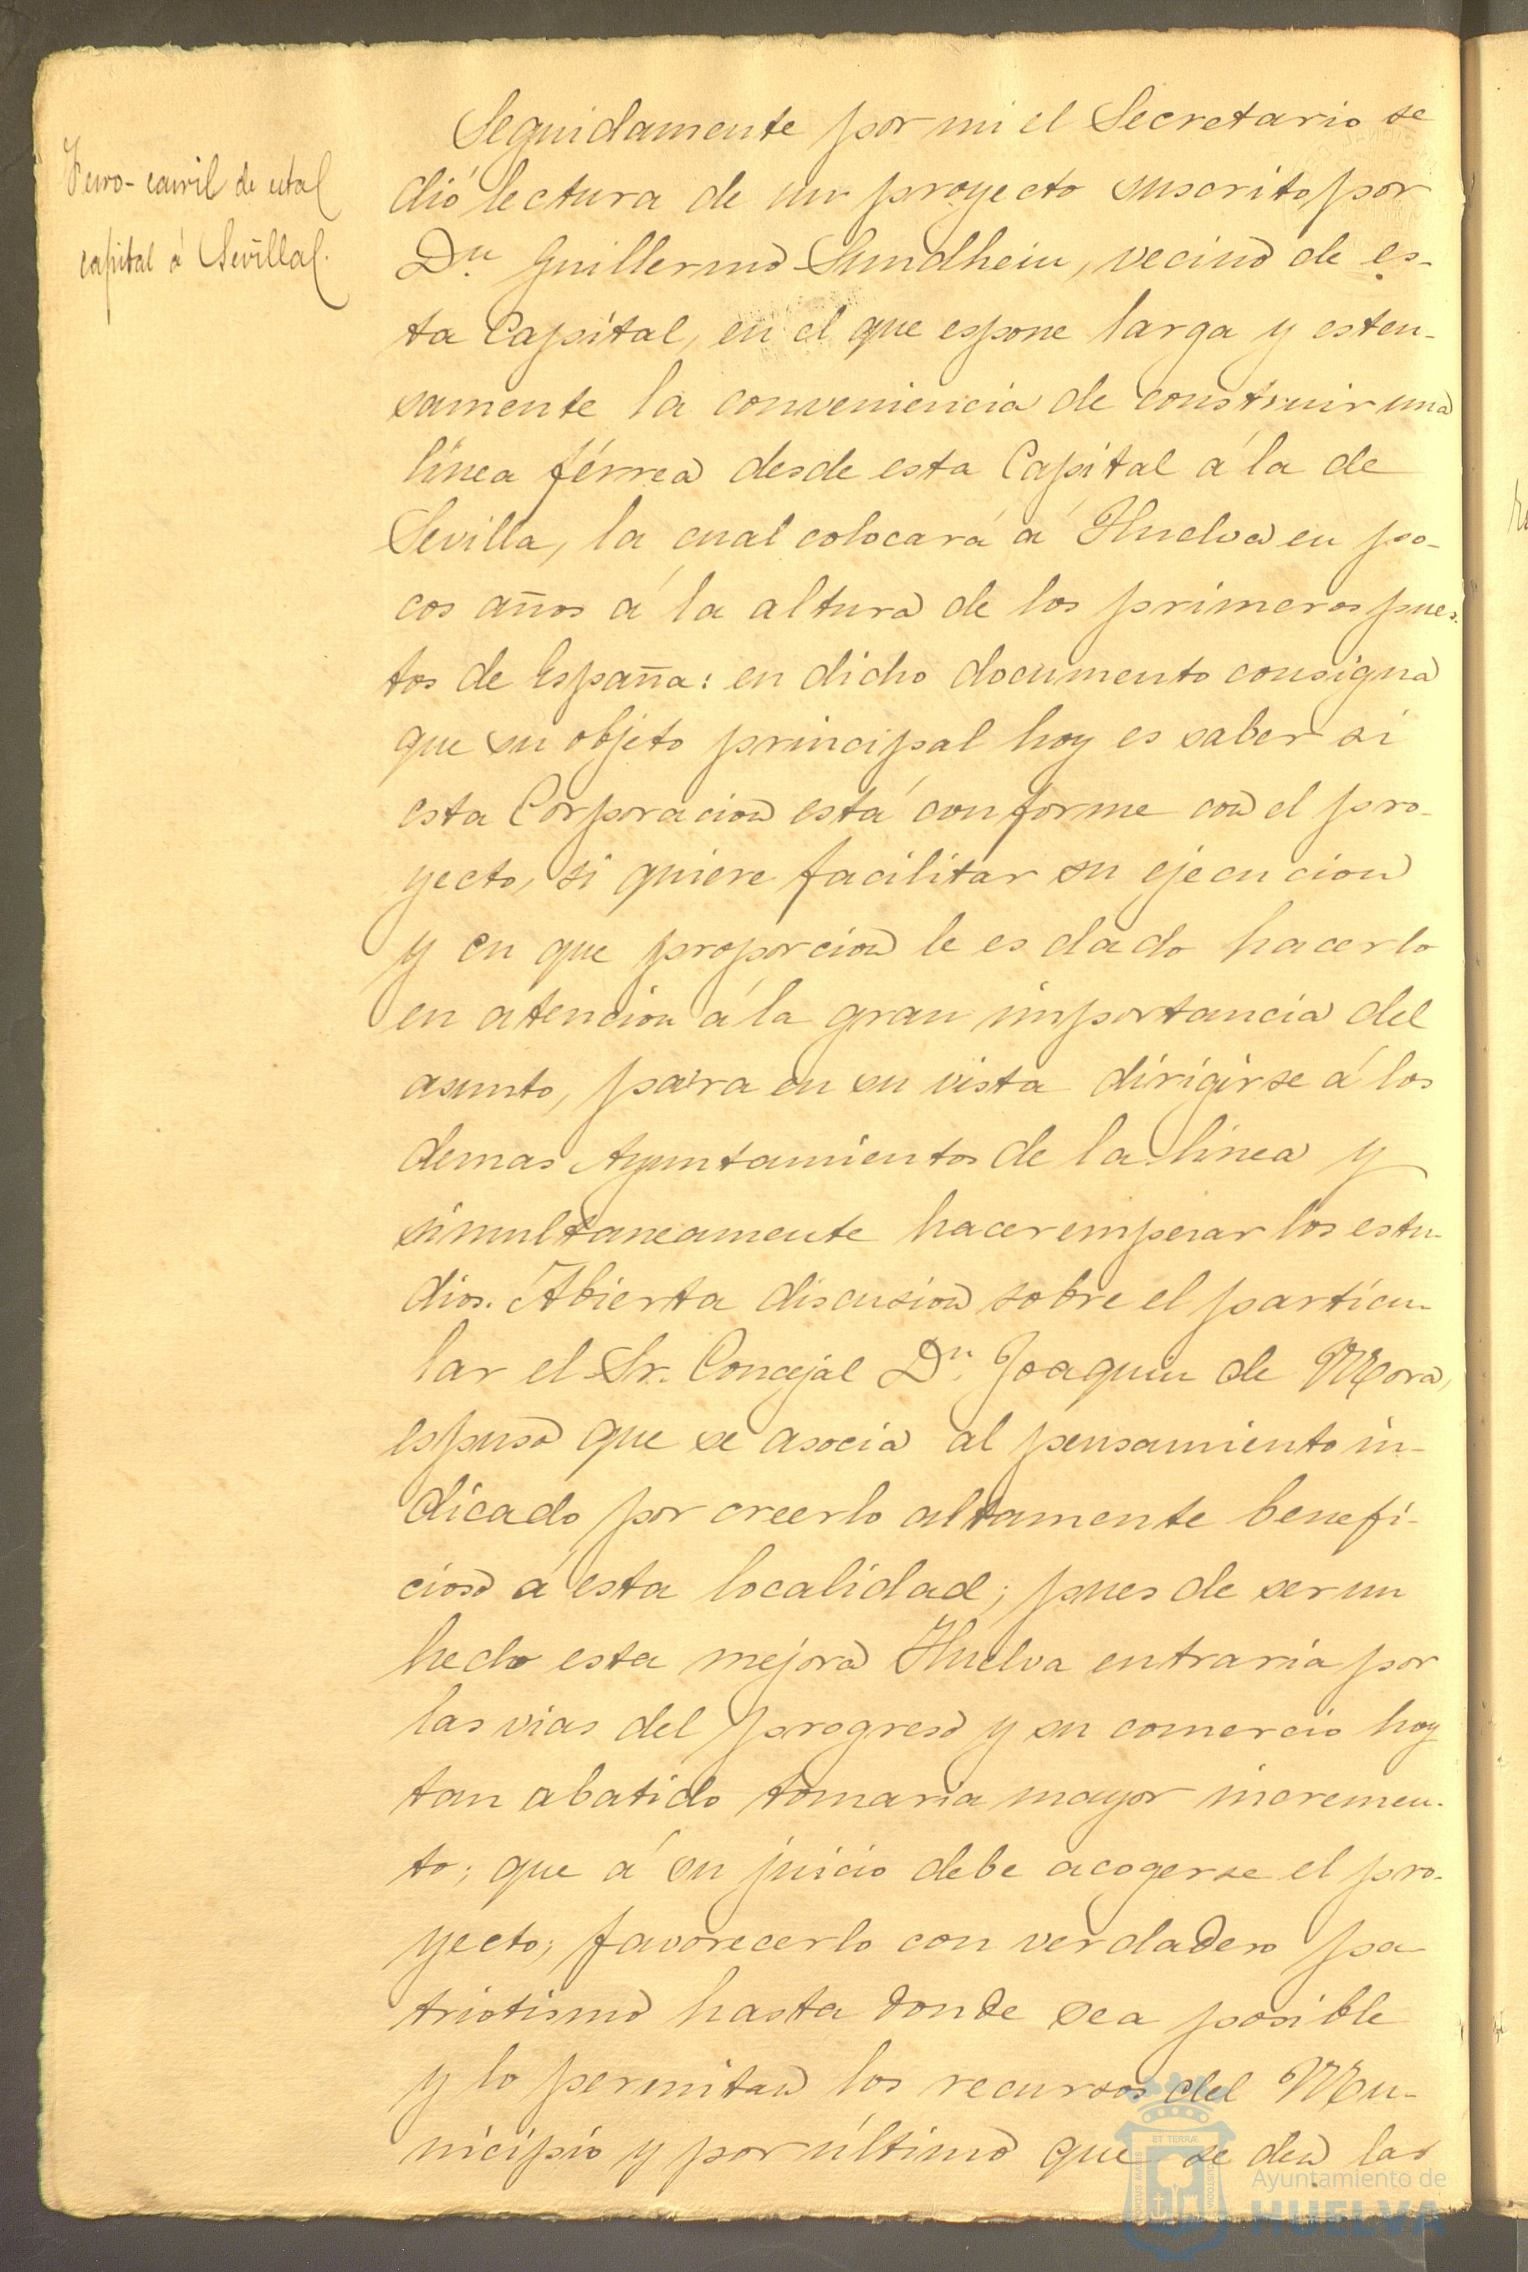 Ferro-carril de esta
capital á Sevilla.
Seguidamente por mi el Secretario se
dió lectura de un proyecto suscrito por
Dn. Guillermo Sundheiu, vecino de es-
ta Capital, en el que espone larga y esten-
samente la conveniencia de construir una
línea férrea desde esta Capital á la de
Sevilla, la cual colocará á Huelva en po-
cos años á la altura de los primeros pues-
tos de España: en dicho documento consigna
que su objeto principal hoy es saber si
esta Corporacion está conforme con el pro-
yecto, si quiere facilitar su ejecucion
y en que proporcion le es dado hacerlo
en atencion á la gran importancia del
asunto, para en su vista dirigirse á los
demas Ayuntamientos de la linea y
simultaneamente hacer empezar los estu-
dios. Abierta discusion sobre el particu-
lar el Sr. Concejal Dn. Joaquin de Mora,
espuso que se asocia al pensamiento in-
dicado por creerlo altamente benefi-
cioso á esta localidad; pues de ser un
hecho esta mejora Huelva entraría por
las vias del progreso y su comercio hoy
tan abatido tomaria mayor incremen-
to; que á su juicio debe acogerse el pro-
yecto; favorecerlo con verdadero pa-
triotismo hasta donde sea posible
y lo permitan los recursos del Mu-
nicipio y por último que se den las
Ayuntamiento de
HUELVA